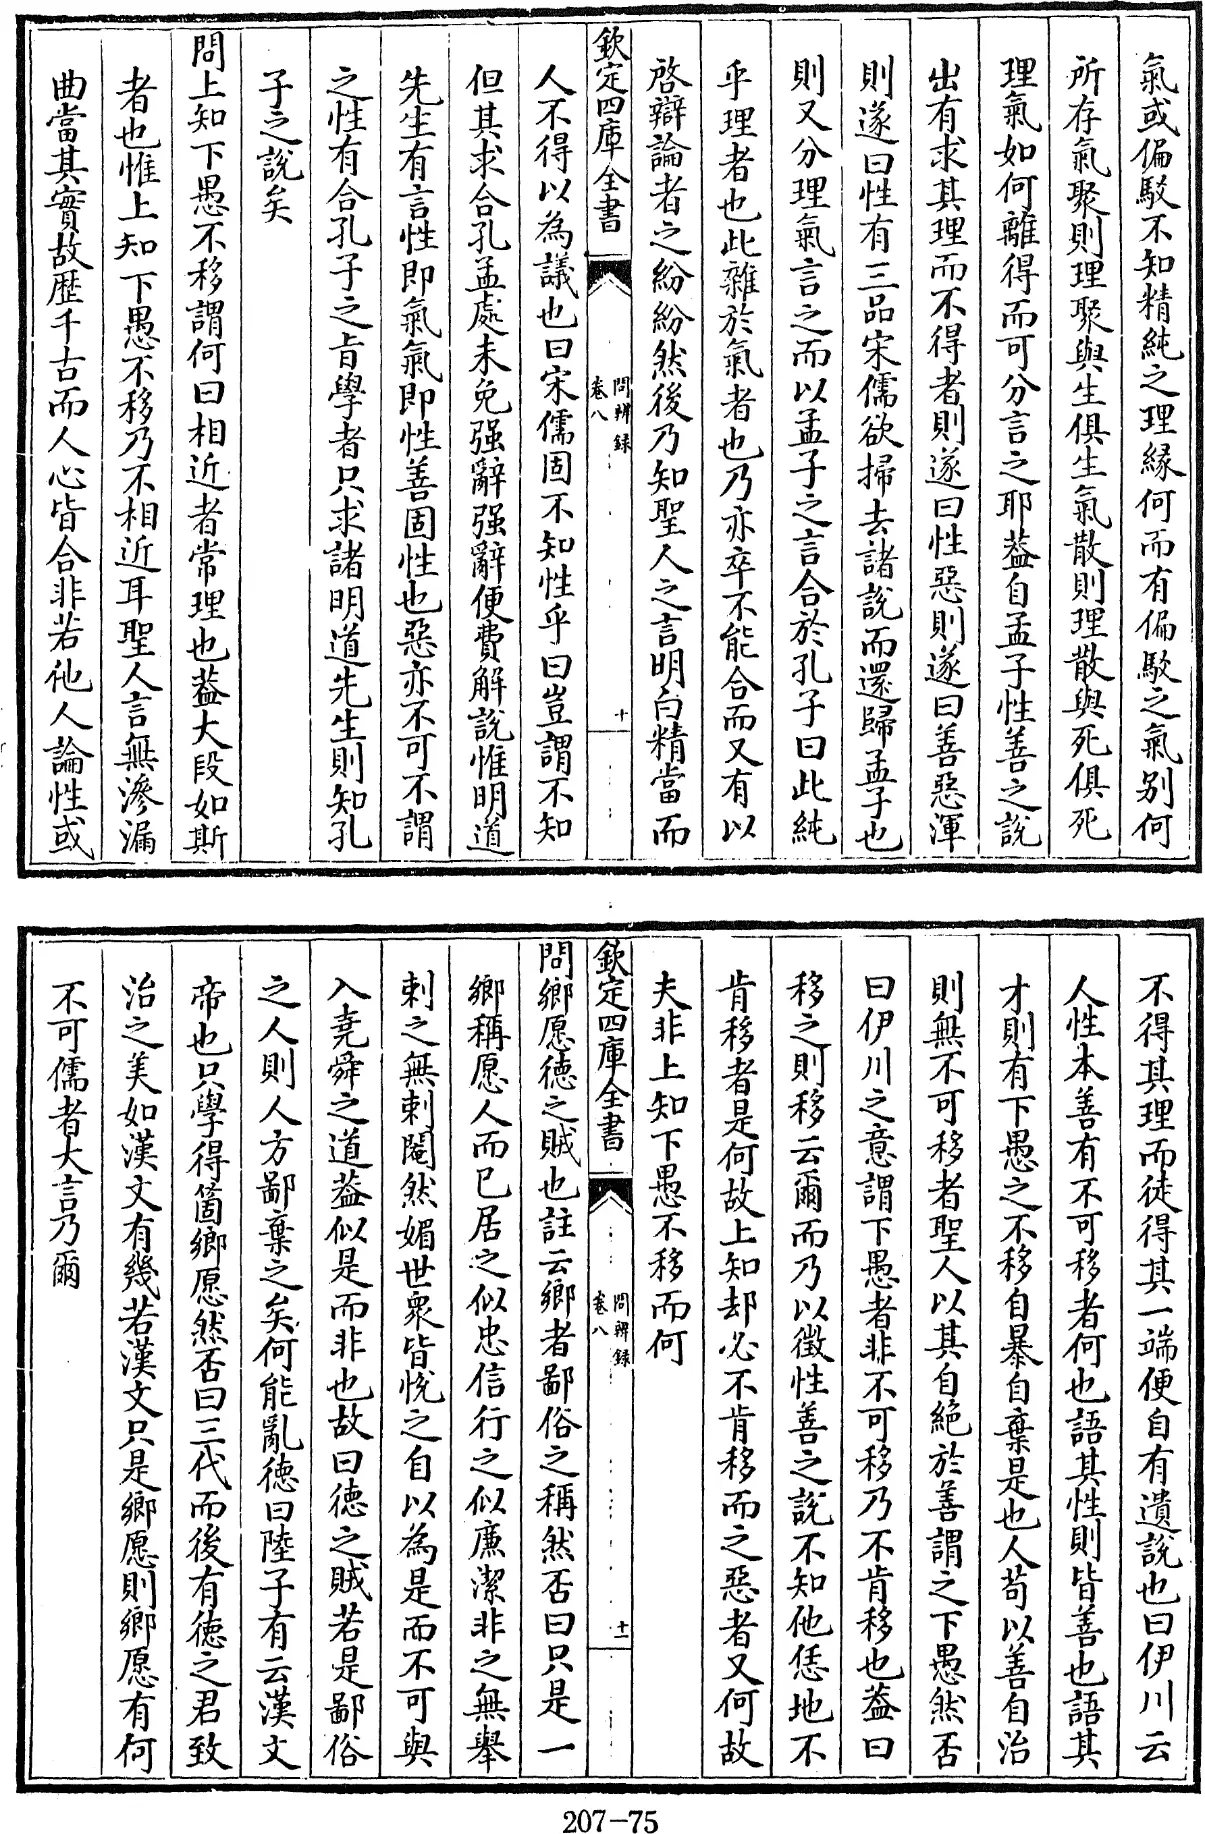 氣或偏駁不知精純之理緣何而有偏駁之氣别何
所存氣聚則理聚與生俱生氣散則理散與死俱死
理氣如何離得而可分言之耶葢自孟子性善之說
出有求其理而不得者則遂曰性惡則遂曰善惡渾
則遂曰性有三品宋儒欲掃去諸說而還歸孟子也
則又分理氣言之而以孟子之言合於孔子曰此純
乎理者也此雜於氣者也乃亦卒不能合而又有以
啓辯論者之紛紛然後乃知聖人之言明白精當而
欽定四庫全書
問辨録
卷八
十
人不得以為議也曰宋儒固不知性乎曰豈謂不知
但其求合孔孟處未免强辭强辭便費解說惟明道
先生有言性即氣氣即性善固性也惡亦不可不謂
之性有合孔子之㫖學者只求諸明道先生則知孔
子之說矣
問上知下愚不移謂何曰相近者常理也葢大段如斯
者也惟上知下愚不移乃不相近耳聖人言無滲漏
曲當其實故歴千古而人心皆合非若他人論性或
不得其理而徒得其一端便自有遺說也曰伊川云
人性本善有不可移者何也語其性則皆善也語其
才則有下愚之不移自暴自棄是也人苟以善自治
則無不可移者聖人以其自絶於善謂之下愚然否
曰伊川之意謂下愚者非不可移乃不肯移也葢曰
移之則移云爾而乃以徵性善之說不知他恁地不
肯移者是何故上知却必不肯移而之惡者又何故
夫非上知下愚不移而何
欽定四庫全書
問辨録
卷八
十一
問鄉愿德之賊也註云鄉者鄙俗之稱然否曰只是一
鄉稱愿人而已居之似忠信行之似亷潔非之無舉
刺之無刺閹然媚世衆皆悅之自以為是而不可與
入堯舜之道葢似是而非也故曰德之賊若是鄙俗
之人則人方鄙棄之矣何能亂德曰陸子有云漢文
帝也只學得箇鄉愿然否曰三代而後有德之君致
治之美如漢文有幾若漢文只是鄉愿則鄉愿有何
不可儒者大言乃爾
207-75